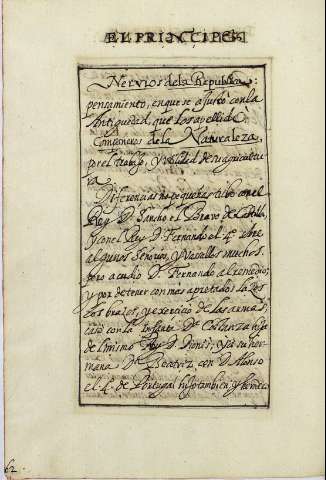 EL PRINCIPE
Nervios de la Republica:
pensamiento, en que se ajustò con la
Antiguedad, que los apellidò
Comuneros de la Naturaleza,
por el trabajo, y vtilidad de su agricultu
ra.
Diferencias no pequeñas tubo con el
Rey D. Sancho el Bravo de Castilla,
y con el Rey D. Fernando el 4.º sobre
algunos Señorios, y Vasallos muchos.
pero acudio D. Fernando al remedio;
y por detener con mas apretados la
los brazos, y exercicio de las armas;
casò con la Infanta D.ª Costanza hija
de el mismo Rey D. Dionis; y a su her
mana D.ª Beatriz con D. Alonso
el 4.º de Portugal hijo tambien, y here
62.